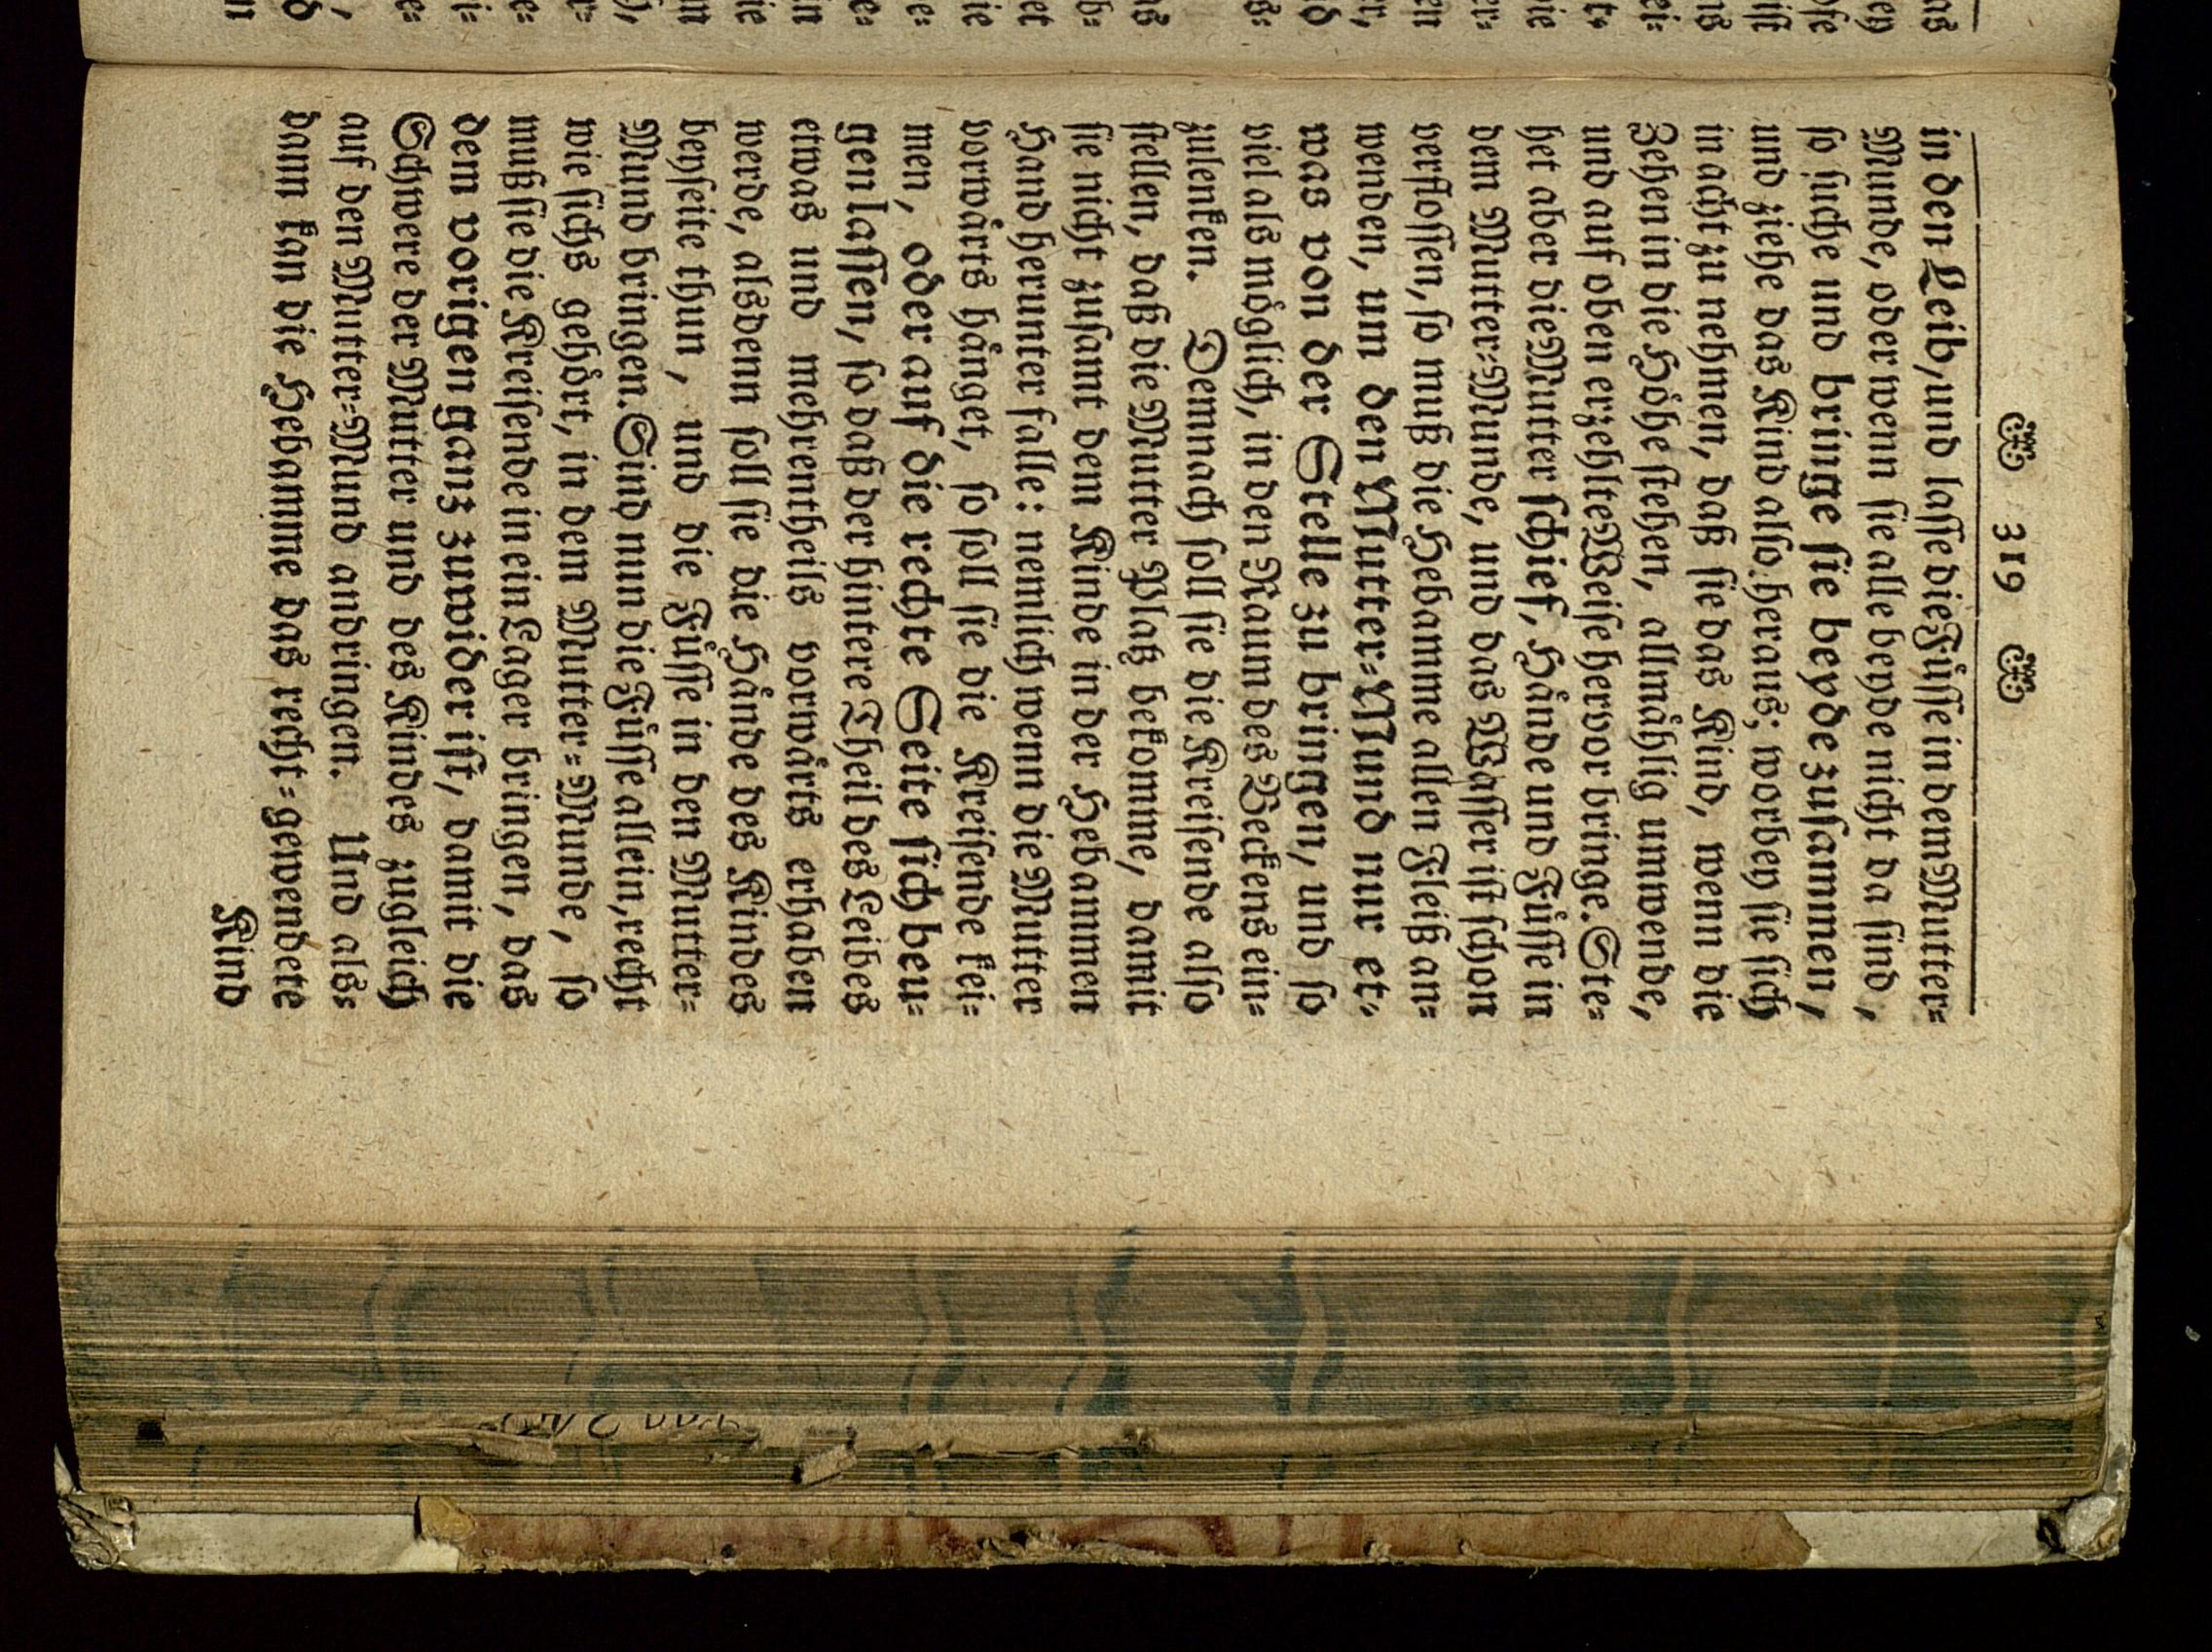 319
in den Leib, und lasse die Füsse in dem Mutter-
Munde, oder wenn sie alle beyde nicht da sind,
so suche und bringe sie beyde zusammen,
und ziehe das Kind also heraus; worbey sie sich
in acht zu nehmen, daß sie das Kind, wenn die
Zehen in die Höhe stehen, allmählig umwende,
und auf oben erzehlte Weise hervor bringe. Ste-
het aber die Mutter schief, Hände und Füsse in
dem Mutter-Munde, und das Wasser ist schon
verflossen, so muß die Hebamme allen Fleiß an-
wenden, um den Mutter-Mund nur et-
was von der Stelle zu bringen, und so
viel als möglich, in den Raum des Beckens ein-
zulencken. Demnach soll sie die Kreisende also
stellen, daß die Mutter Platz bekomme, damit
sie nicht zusamt dem Kinde in der Hebammen
Hand herunter falle: nemlich wenn die Mutter
vorwärts hänget, so soll sie die Kreisende kei-
men, oder auf die rechte Seite sich beu-
gen lassen, so daß der hintere Theil des Leibes
etwas und mehrentheils vorwärts erhaben
werde, alsdenn soll sie die Hände des Kindes
beyseite thun, und die Füsse in den Mutter-
Mund bringen. Sind nun die Füsse allein, recht
wie sichs gehört, in dem Mutter-Munde, so
muß sie die Kreisende in ein Lager bringen, das
dem vorigen ganz zuwider ist, damit die
Schwere der Mutter und des Kindes zugleich
auf den Mutter-Mund andringen. Und als-
dann kan die Hebamme das recht-gewendete
Kind